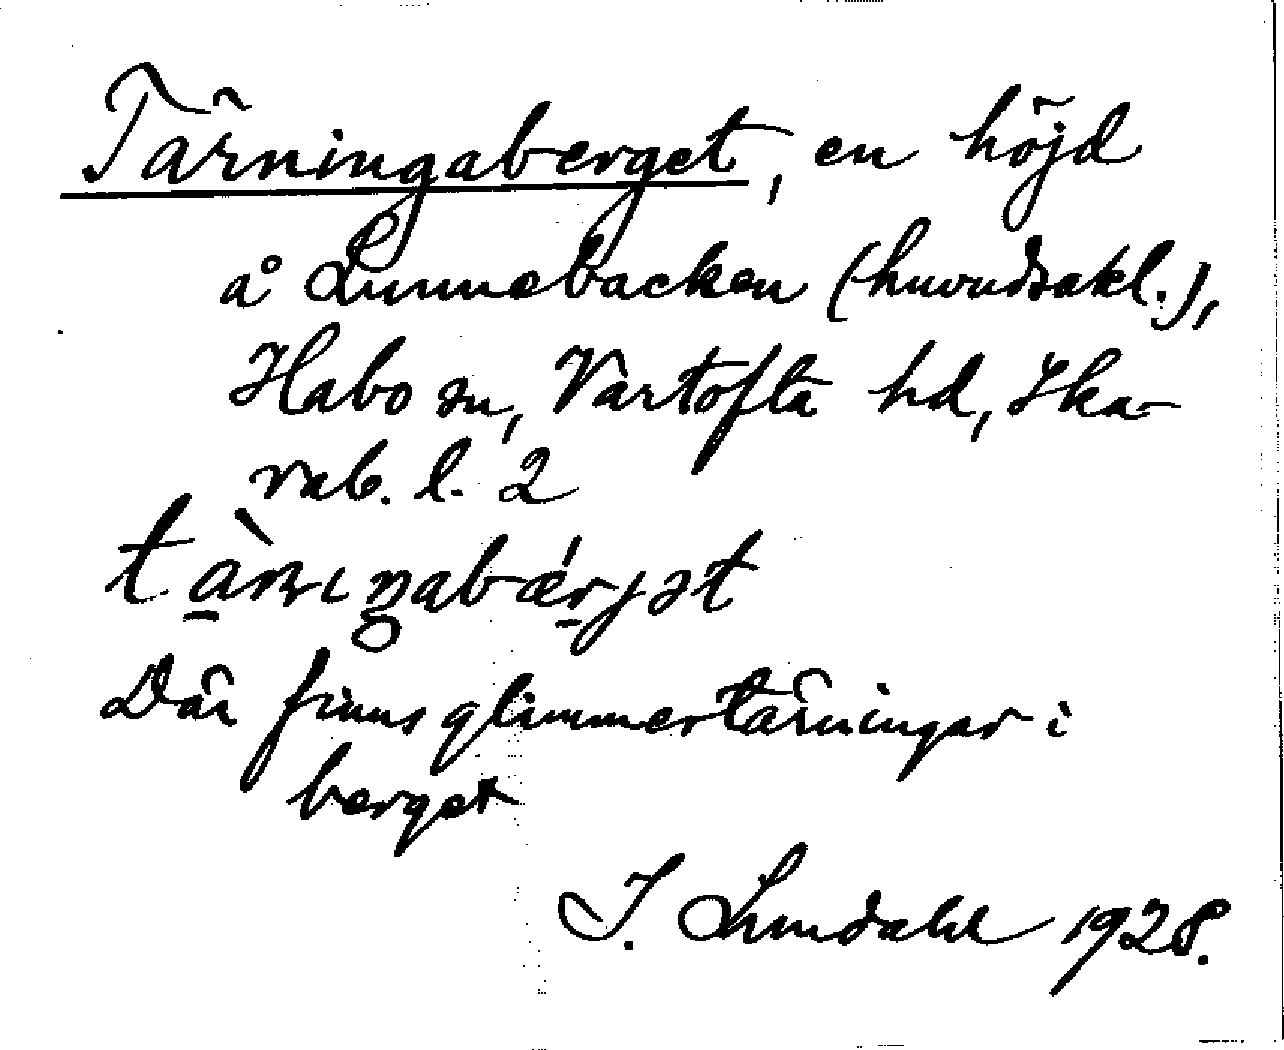 Tärningaberget, en höjd
å Lunnebacken (huvudsakl.),
Habo sn, Vartofta hd, Ska-
rab. l. 2
Där finns glimmertärningar i
berget
I. Lundahl 1928.